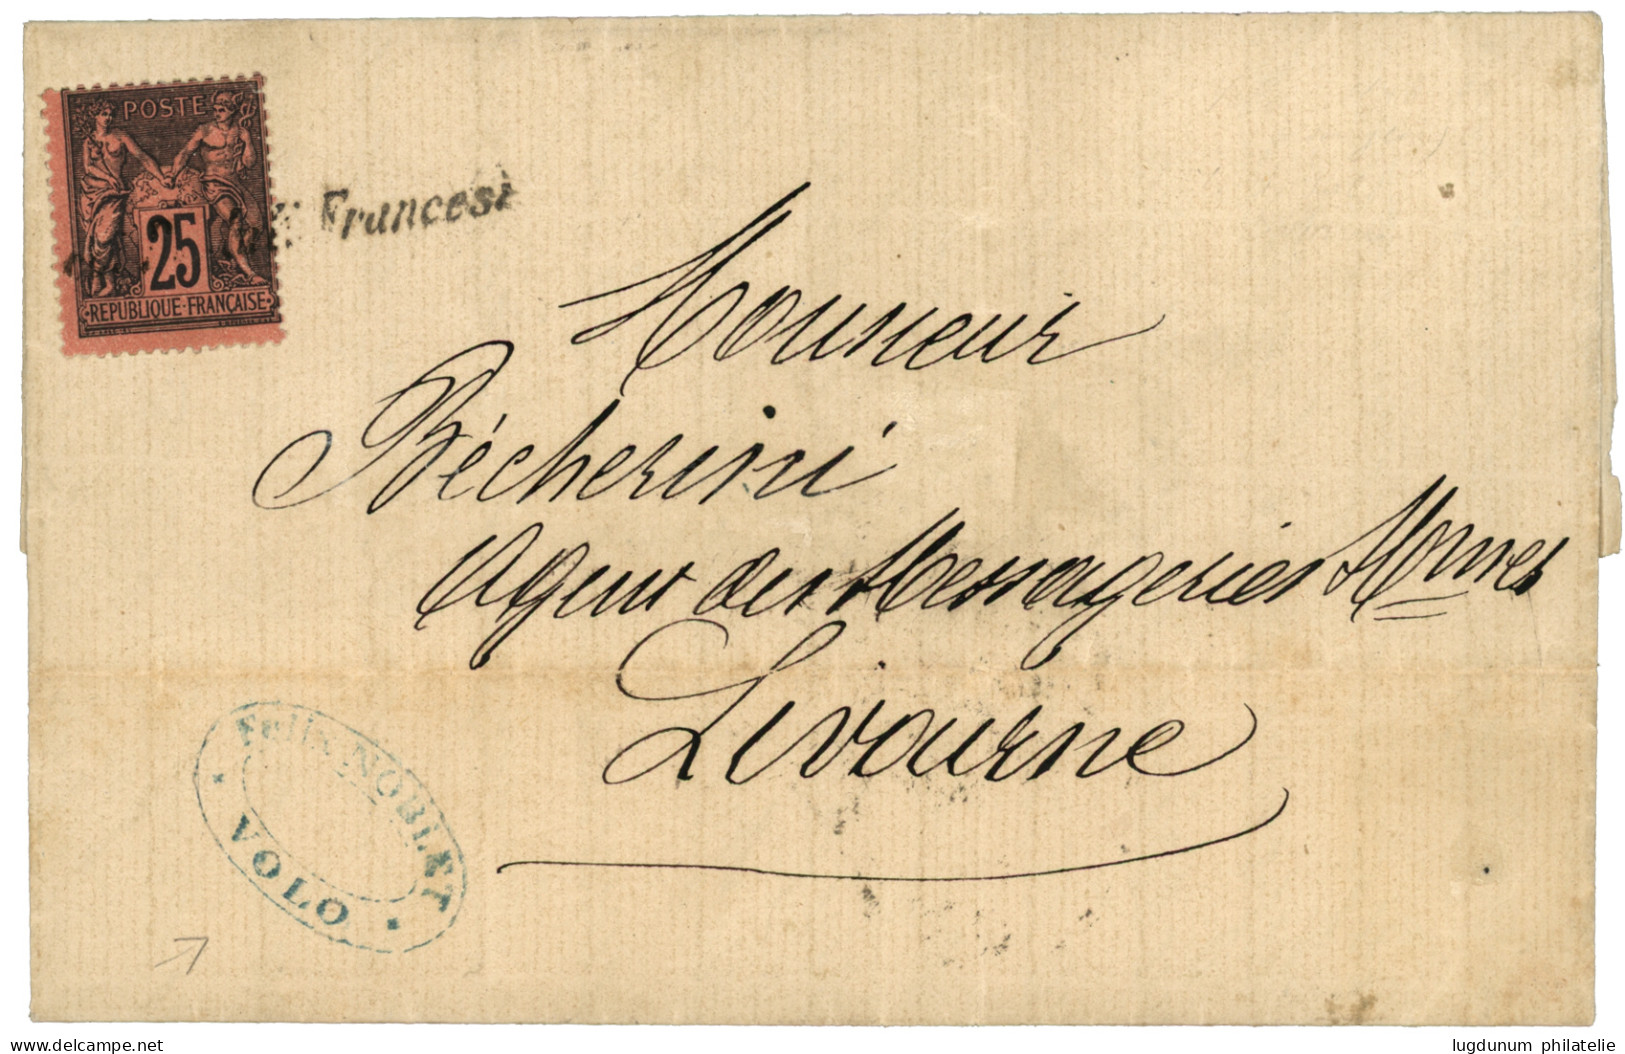 POSTE
25
REPUBLIQUE-FRANÇAISE
Francesi
Monsieur
Bécherini
Agent des Messageries Mmes
Livourne
Felix NOBILET
VOLO
delcampe.net
lugdunum philatelie